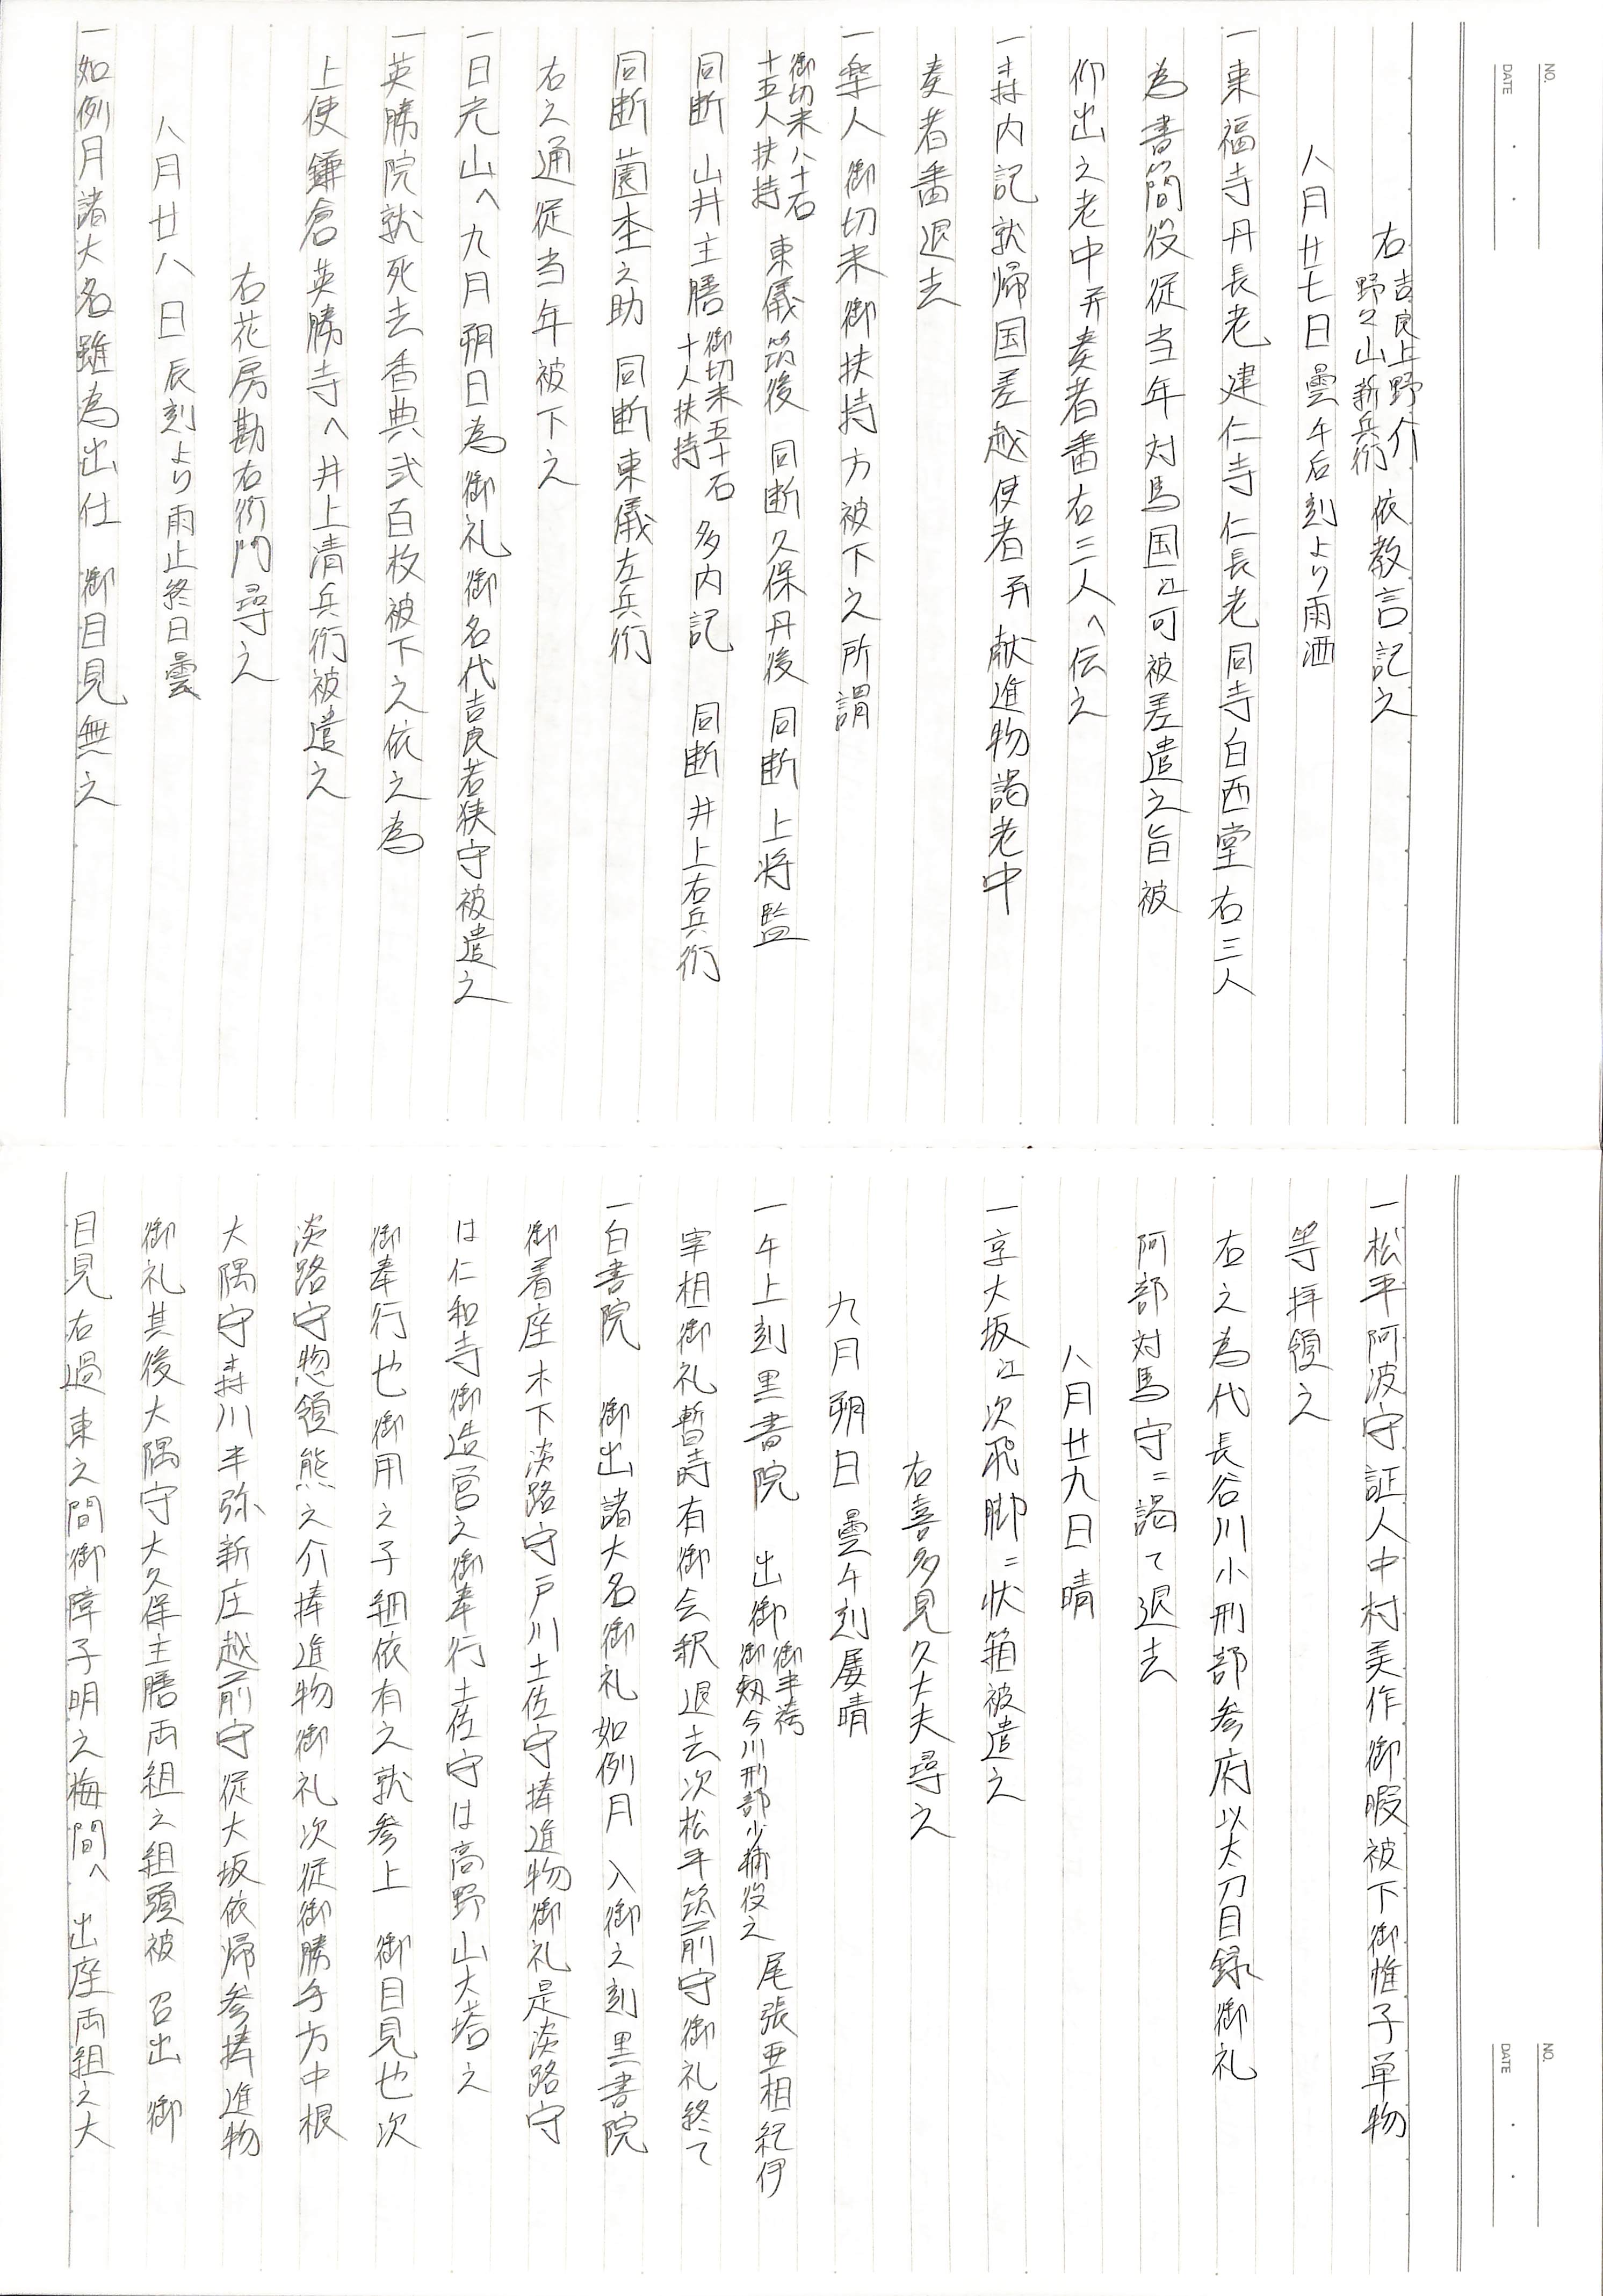 NO.
DATE
右 吉良上野介 野々山新兵衛 依教言記之
八月廿七日 曇午后刻より雨洒
一東福寺丹長老建仁寺仁長老同寺白西堂右三人
為書簡役従当年対馬国江可被差遣之旨被
仰出之老中并奏者番右三人へ伝之
一森内記就帰国差越使者并献進物謁老中
奏者番退去
一楽人御切米御扶持方被下之所謂
御切米八十石 十五人扶持 東儀筑後 同断久保丹後 同断 上将監
同断 山井主膳 御切米五十石 十人扶持 多内記 同断井上右兵衛
同断 薗杢之助 同断東儀左兵衛
右之通従当年被下之
一日光山へ九月朔日為御礼御名代吉良若狭守被遣之
一英勝院就死去香典弐百枚被下之依之為
上使鎌倉英勝寺へ井上清兵衛被遣之
右花房勘右衛門尋之
八月廿八日 辰刻より雨止終日曇
一如例月諸大名雖為出仕 御目見無之
NO.
DATE
一松平阿波守証人中村美作御暇被下御惟子単物
等拝領之
右之為代長谷川小刑部参府以太刀目録御礼
阿部対馬守ニ謁て退去
八月廿九日 晴
一京大坂江次飛脚ニ状箱被遣之
右喜多見久太夫尋之
九月朔日 曇午刻属晴
一午上刻黒書院 出御 御半袴 御剱今川刑部少輔役之 尾張亜相紀伊
宰相御礼暫時有御会釈退去次松平筑前守御礼終て
一白書院 御出諸大名御礼如例月 入御之刻黒書院
御着座木下淡路守戸川土佐守捧進物御礼是淡路守
は仁和寺御造営之御奉行土佐守は高野山大塔之
御奉行也御用之子細依有之就参上 御目見也次
淡路守惣領熊之介捧進物御礼次従御勝手方中根
大隅守森川半弥新庄越前守従大坂依帰参捧進物
御礼其後大隅守大久保主膳両組之組頭被 召出 御
目見右過東之間御障子明之梅間へ 出座両組之大